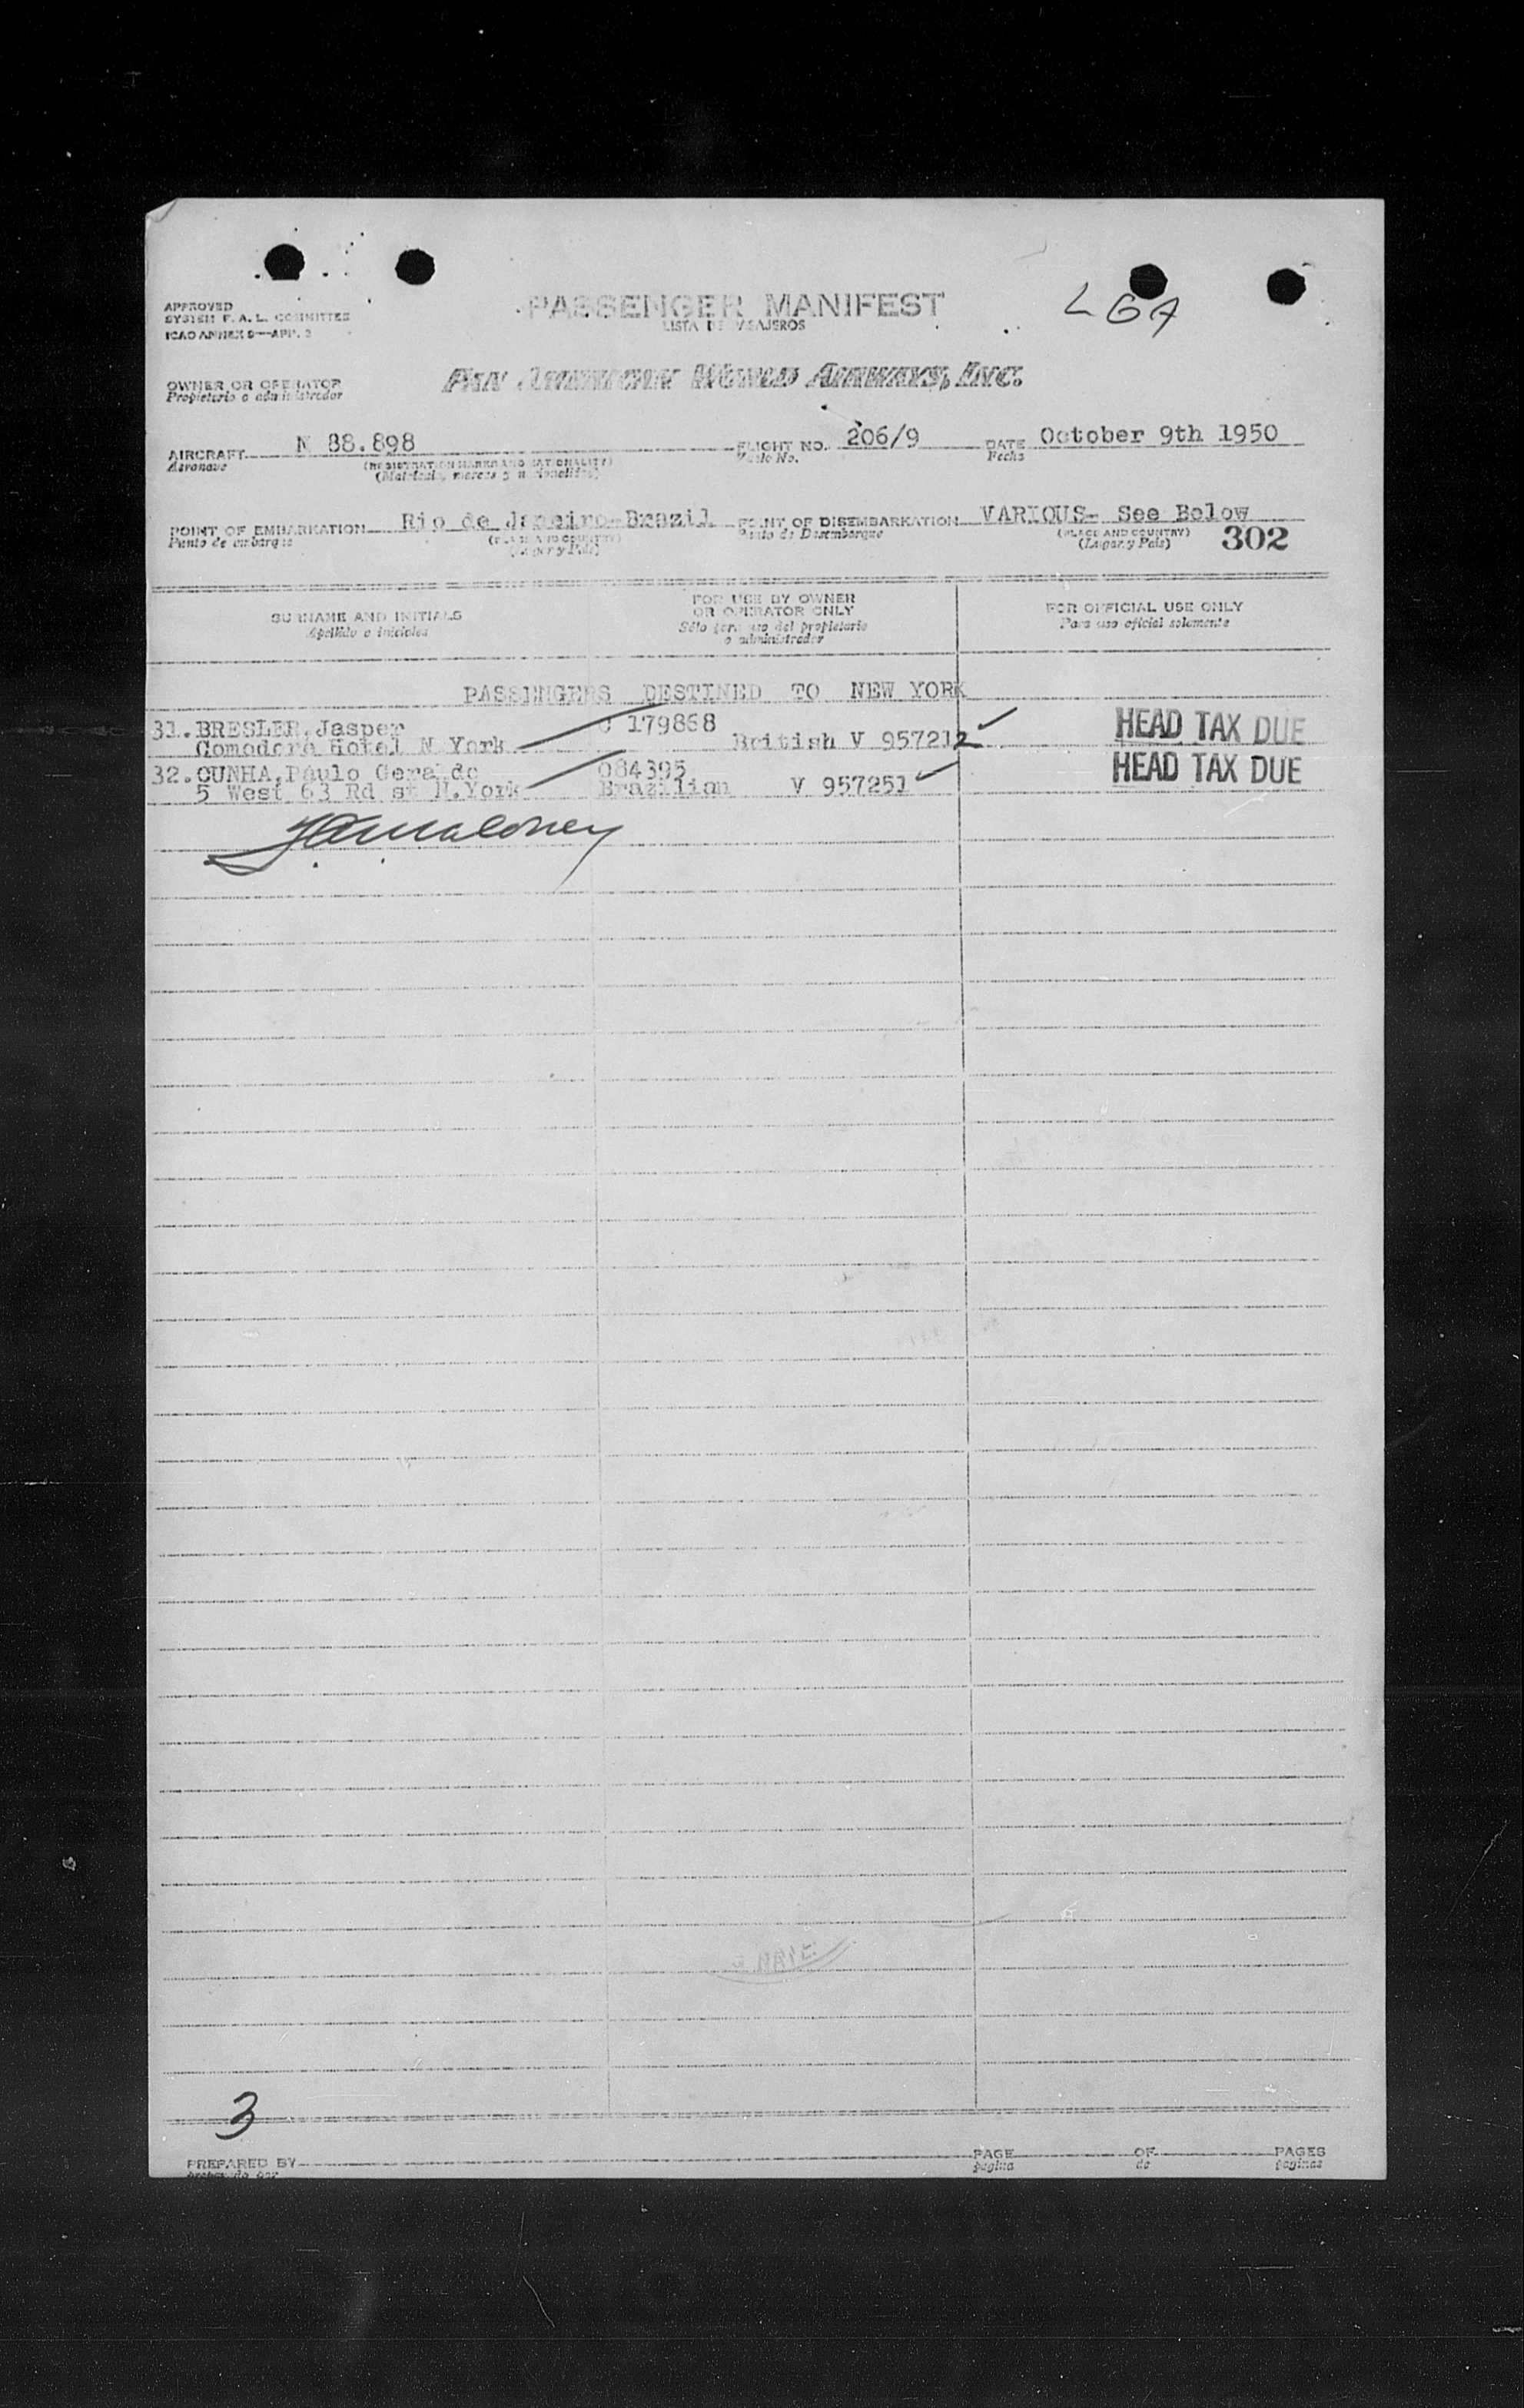 LGA
APPROVED
SYSTEM F. A. L. COMMITTEE
ICAO ANNEX 9—APP. 3
PASSENGER MANIFEST
LISTA DE VIAJEROS
OWNER OR OPERATOR
Propietario o administrador
PAN AMERICAN WORLD AIRWAYS, INC.
AIRCRAFT N 88.898 FLIGHT NO. 206/9 DATE October 9th 1950
Aeronave (REGISTRATION MARKS AND NATIONALITY) Vuelo No. Fecha
POINT OF EMBARKATION Rio de Janeiro-Brazil POINT OF DISEMBARKATION VARIOUS- See Below
Punto de embarque (PLACE AND COUNTRY) Punto de Desembarque (PLACE AND COUNTRY) 302
(Lugar y País) (Lugar y País)
SURNAME AND INITIALS
Apellido e iniciales
FOR USE BY OWNER
OR OPERATOR ONLY
Sólo para uso del propietario
o administrador
FOR OFFICIAL USE ONLY
Para uso oficial solamente
PASSENGERS DESTINED TO NEW YORK
31. BRESLER, Jasper C 179868 HEAD TAX DUE
Comodore Hotel N York British V 957212
32. CUNHA, Paulo Geraldo 084395 HEAD TAX DUE
5 West 63 Rd st N.York Brazilian V 957251
Maloney
3
PREPARED BY PAGE OF PAGES
preparado por página de páginas